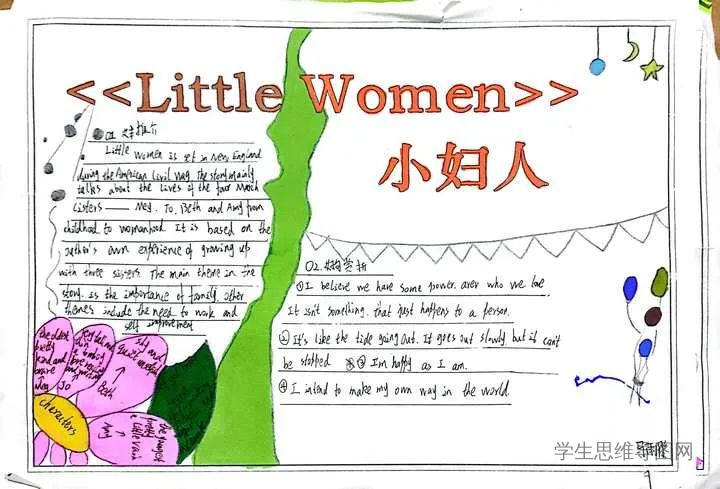 <<Little Women>>
小妇人
01
Little Women is set in New England
during the American Civil War. The story mainly
talks about the lives of the four March
Listers —— Meg. To, Beth and Amy from
childhood to womanhood. It is based on the
author's own experience of growing up
with three sisters. The main theme in the
story. is the importance of family. Other
themes include the need to work and
self improvement
02. 赏析
① I believe we have some power. over who we love
It isn't something that just happens to a person.
② It's like the tide going out. It goes out slowly but it can't
be stopped ③ I'm happy as I am.
④ I intend to make my own way in the world.
the oldest
pretty
kind and
Meg
Jo
shy and
Beth
the youngest
pretty
a little vain
Amy
characters
学生思维导图网